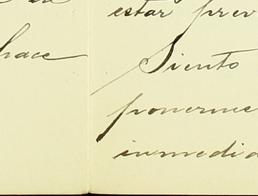 hace
estar prev
Siento
ponerme
inmedia